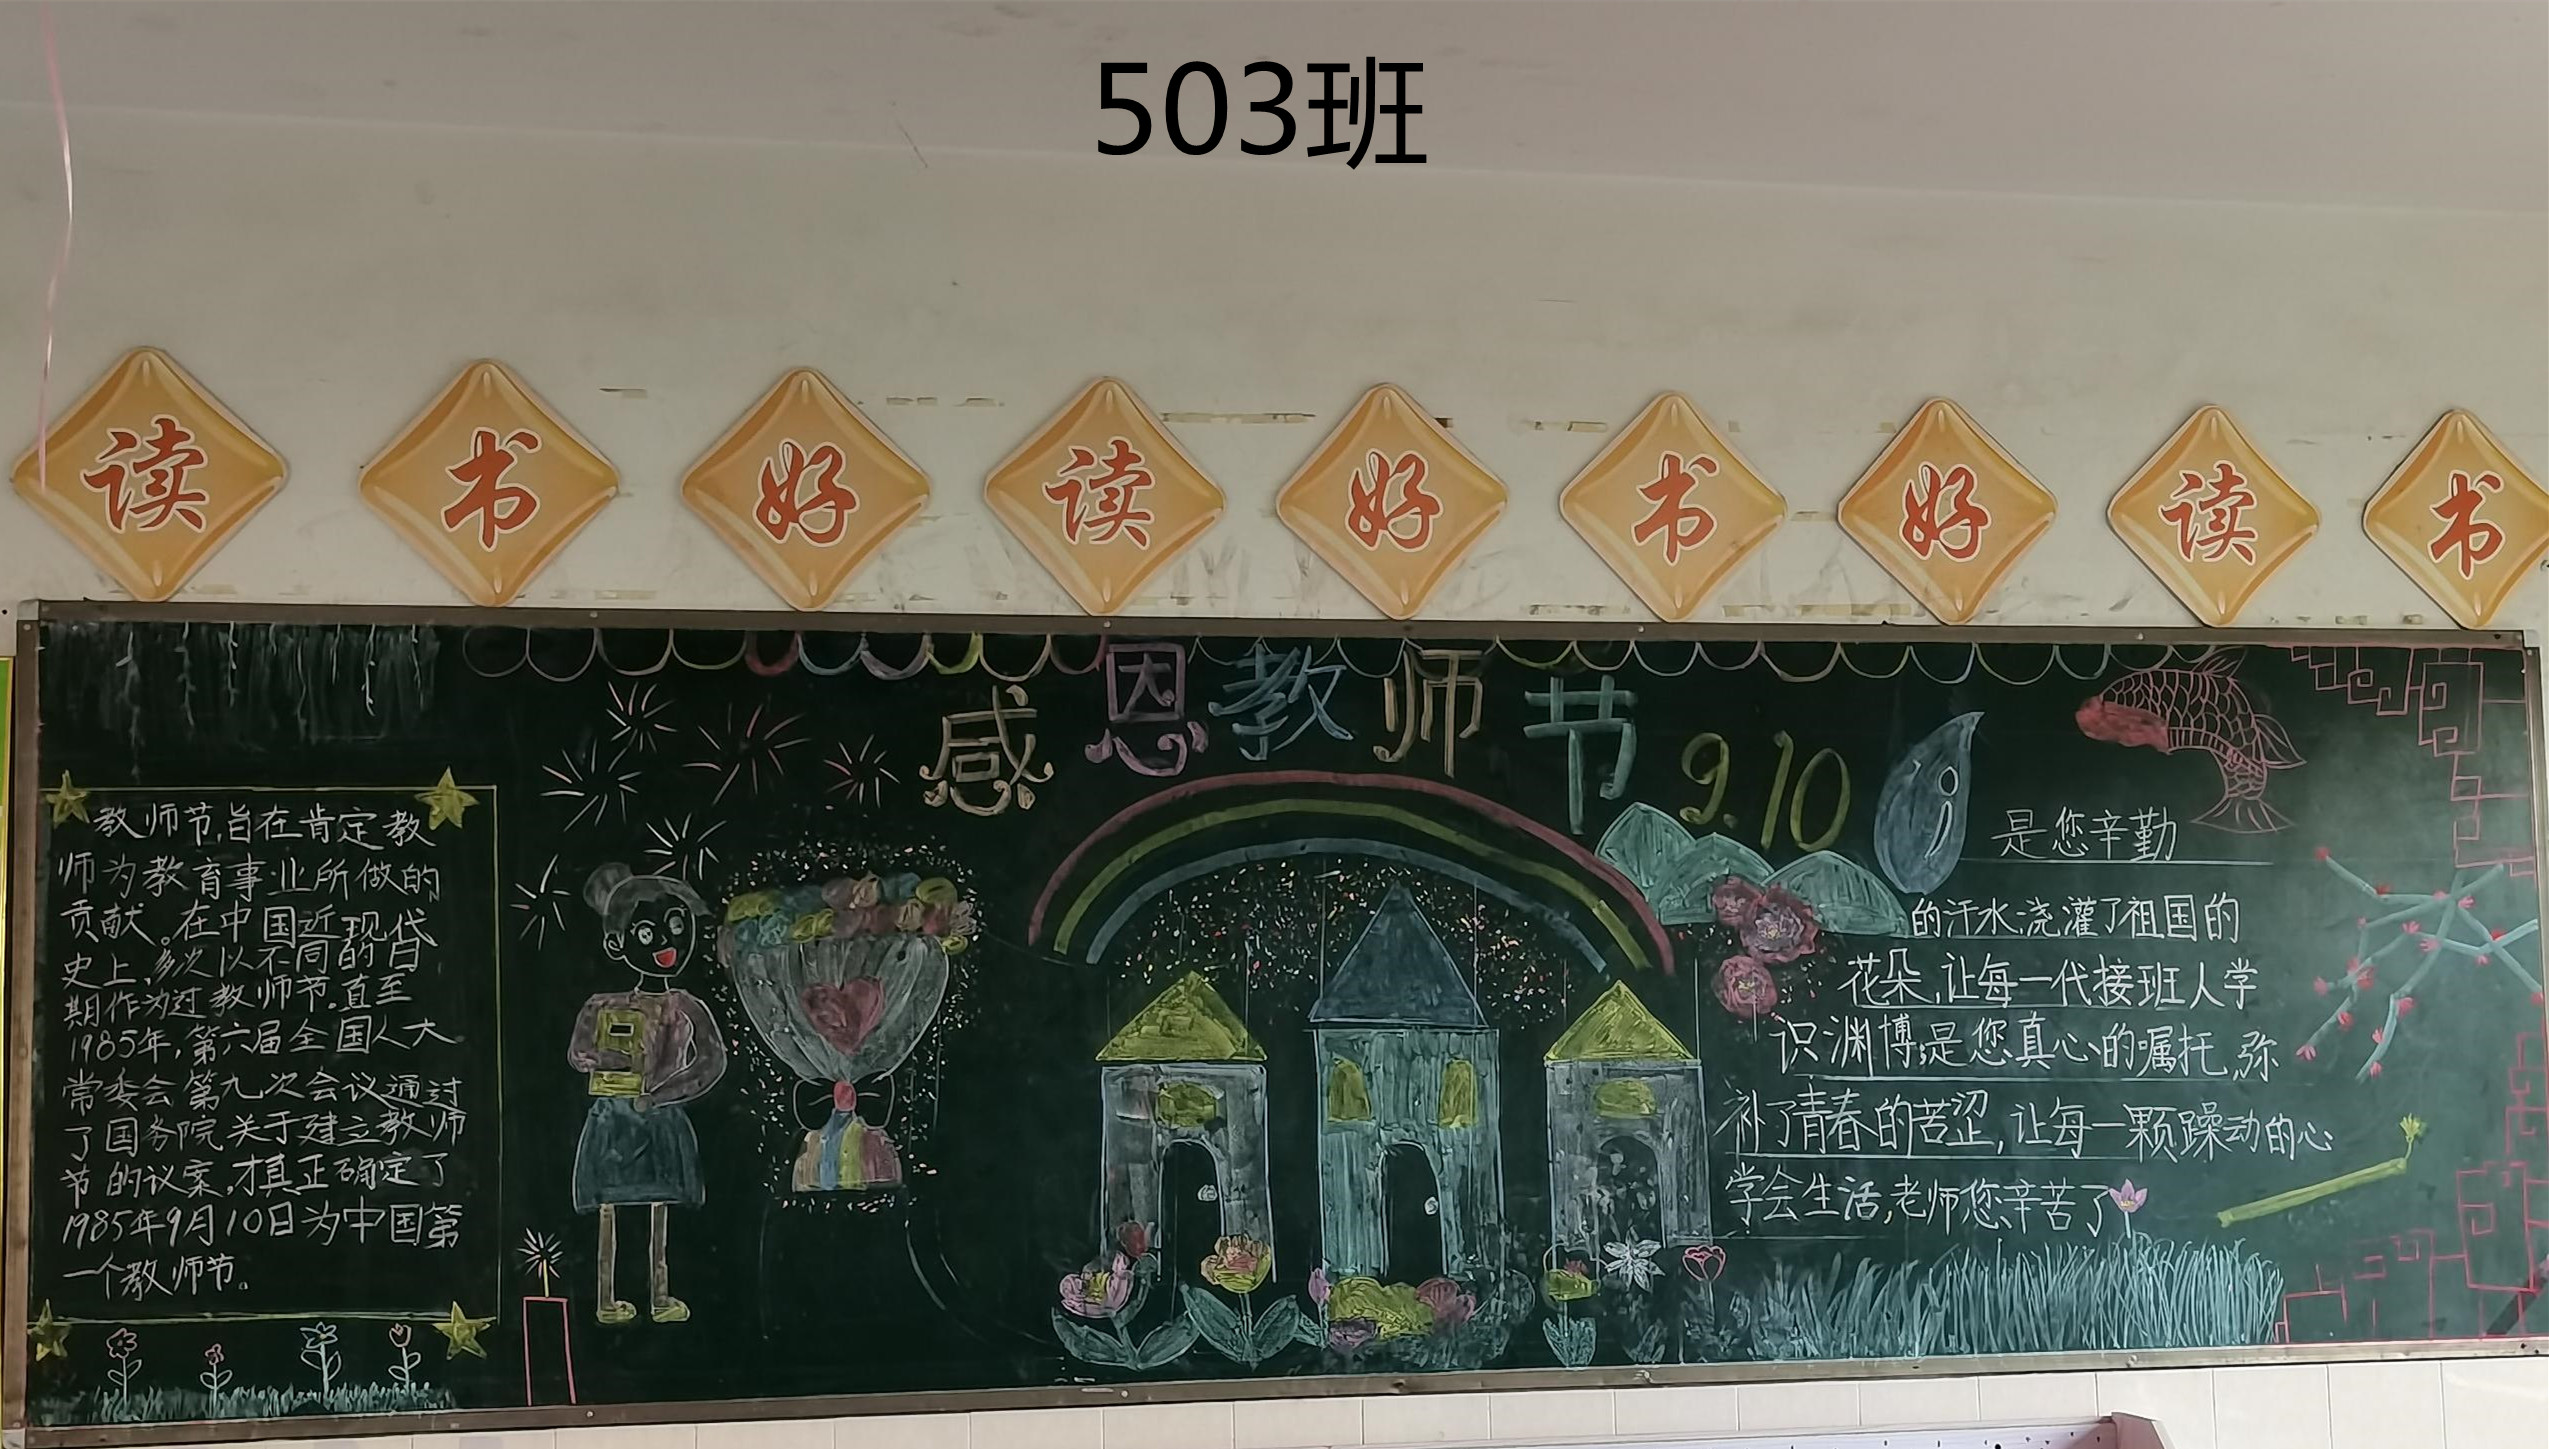 503班
读书好读好书好读书
感恩教师节9.10
教师节,旨在肯定教
师为教育事业所做的
贡献。在中国近现代
史上,多次以不同的日
期作为过教师节。直至
1985年,第六届全国人大
常委会第九次会议通过
了国务院关于建立教师
节的议案,才真正确定了
1985年9月10日为中国第
一个教师节。
是您辛勤
的汗水,浇灌了祖国的
花朵,让每一代接班人学
识渊博;是您真心的嘱托,弥
补了青春的苦涩,让每一颗躁动的心
学会生活,老师您辛苦了